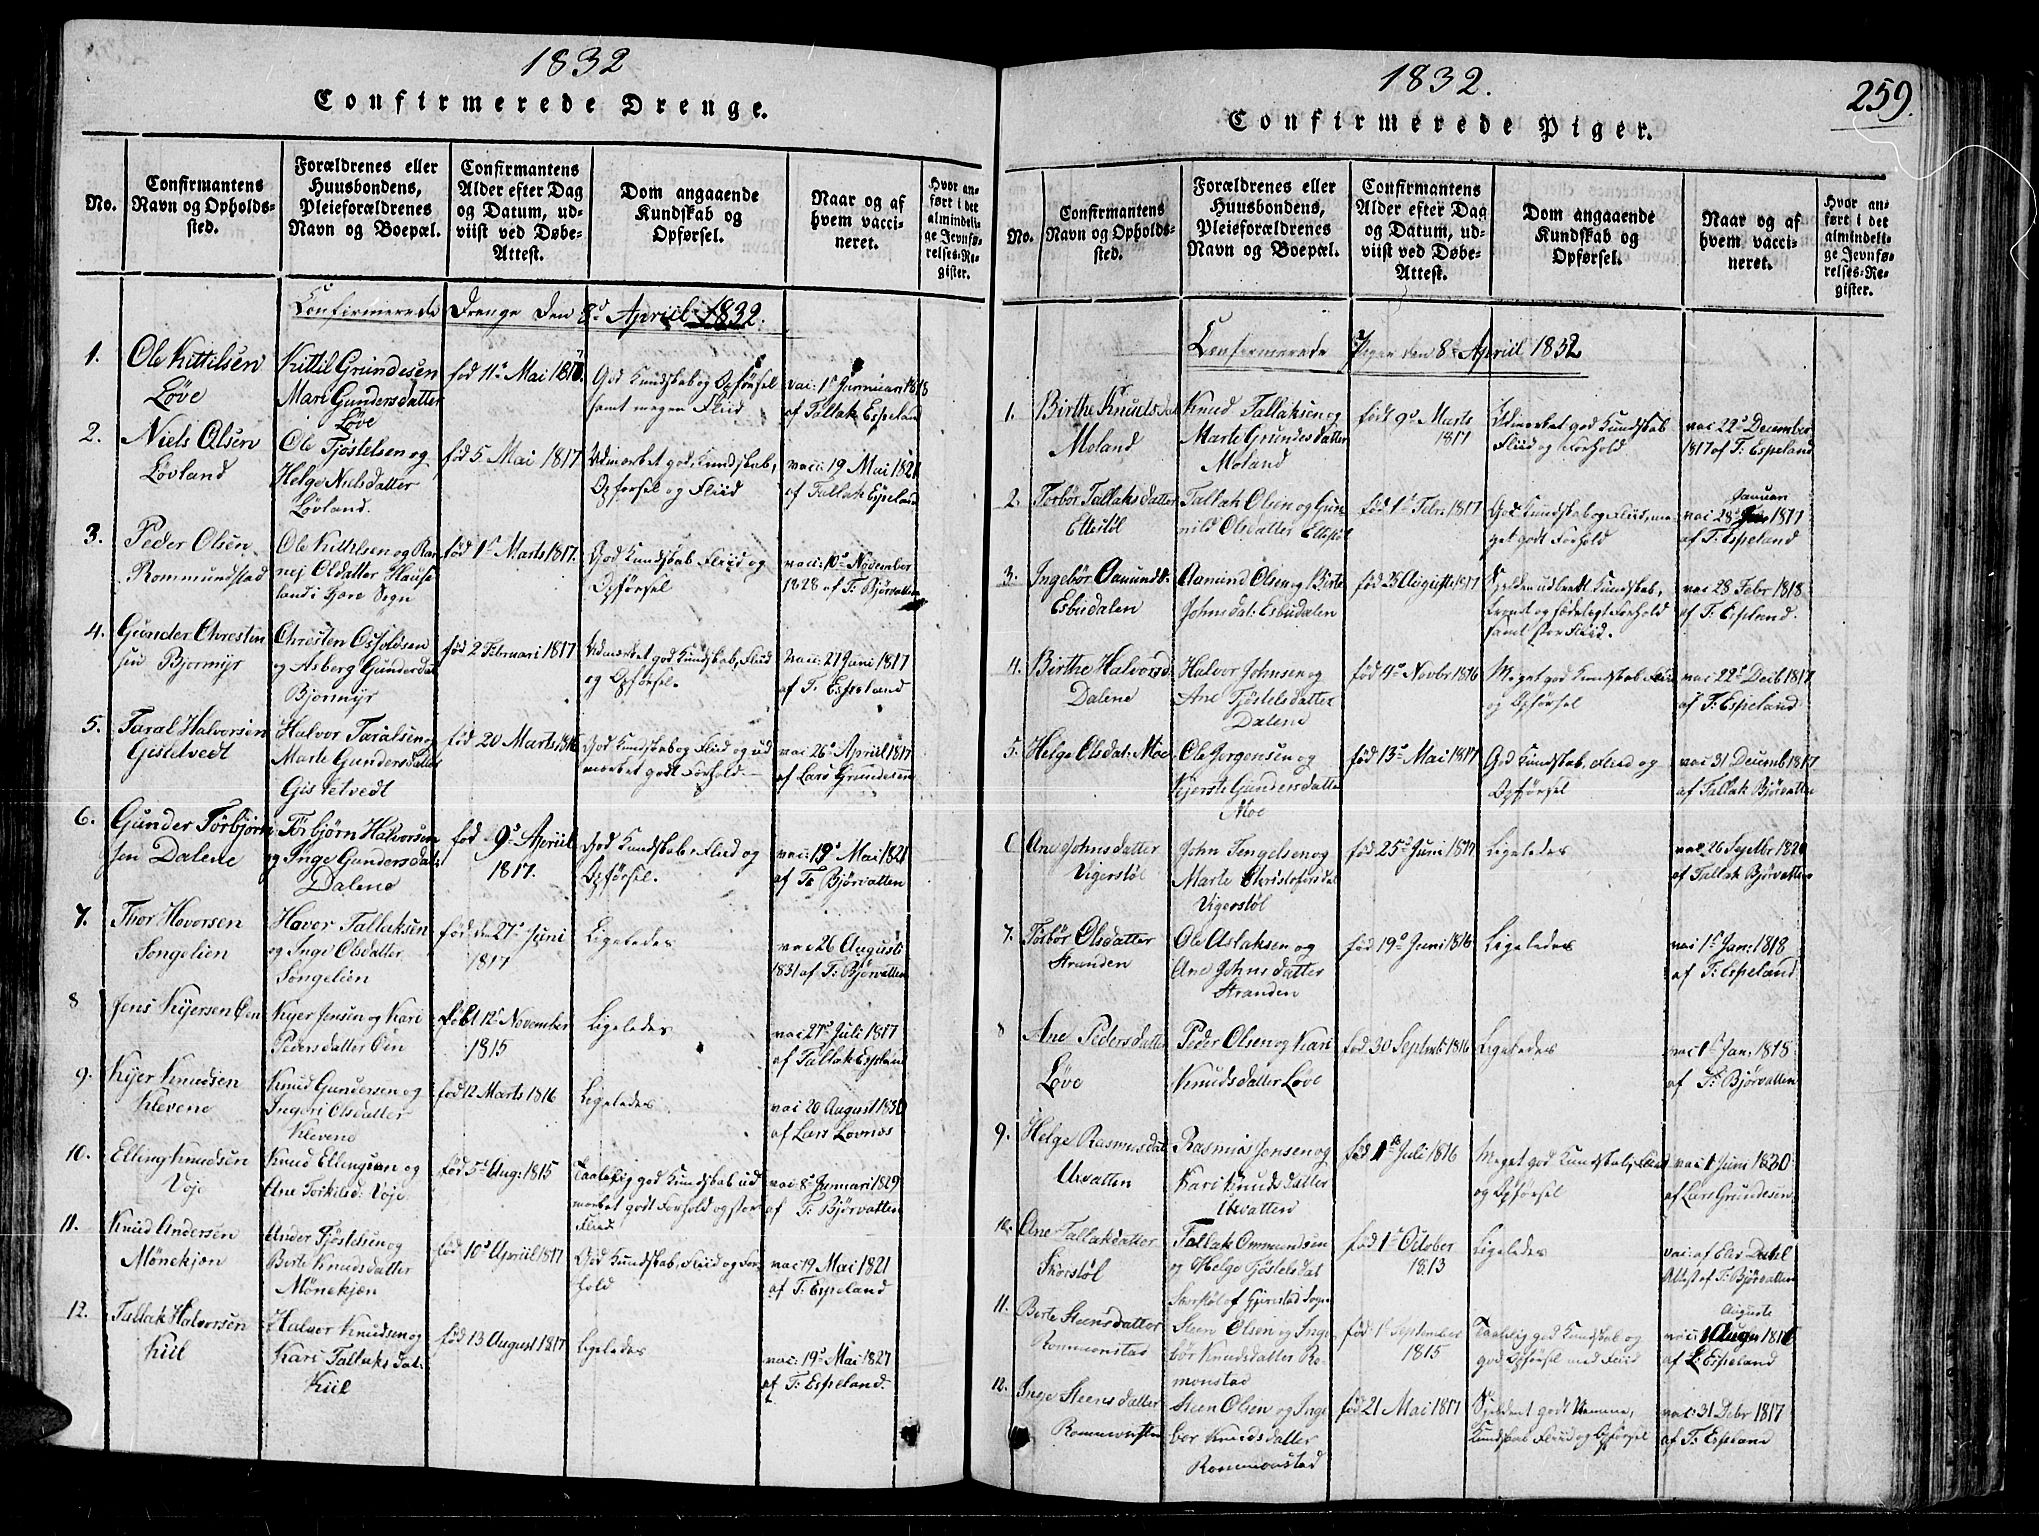 1832
Confirmerede Drenge.
No.
Confirmantens
Navn og Opholds-
sted.
Forældrenes eller
Huusbondens,
Pleieforældrenes
Navn og Boepæl.
Confirmantens
Alder efter Dag
og Datum, ud-
viist ved Døbe-
Attest.
Dom angaaende
Kundskab og
Opførsel.
Naar og af
hvem vacci-
neret.
Hvor an-
ført i det
almindeli-
ge Jevnfø-
relses-Re-
gister.
Confirmerede Drenge den 8d Apriil 1832.
1.
Ole Kittilsen
Løve
Kittil Grundesen
Mari Gundersdatter
Løve
fød 11te Mai 1817
God Kundskab og Opførsel
samt megen Fliid
vac: 1ste Januari 1818
af Tallak Espeland
2.
Niels Olsen
Løvland
Ole Tjøstelsen og
Helge Nielsdatter
Løvland.
fød 5 Mai 1817
Udmerket god Kundskab,
Opførsel og Fliid
vacc: 19 Mai 1821
af Tallak Espeland
3.
Peder Olsen
Rommundstad
Ole Kittilsen og Ran
nej Olsdatter Hause
land i Hore Sogn
fød 1st Marts 1817.
God Kundskab Fliid og
Opførsel
vacc: 10de November
1828 af T: Bjørvatten
4.
Gunder Chresten
sen Bjormyr
Chresten Osfoldsen
og Asberg Gundersdat
Bjormyr
fød 2 Februari 1817
Udmerket god Kundskab, Fliid
og Opførsel.
vacc: 21 Juni 1817
af T: Espeland
5.
Taral Halvorsen
Gistetvedt
Halvor Taralsen og
Marte Gundersdatter
Gistetvedt
fød 20 Marts 1816
God Kundskab og Fliid og ud
merket godt Forhold
vac 26de Apriil 1817
af Lars Grundesen
6.
Gunder Torbjørn
sen Dalene
Torbjørn Halvorsen
og Inge Gundersdat:
Dalene
fød 9de Apriil
1817.
God Kundskab Fliid og
Opførsel.
vac: 19de Mai 1821
af T: Bjørvatten
7.
Thor Havorsen
Songelien
Havor Tallaksen
og Inge Olsdatter
Songelien
fød den 27de Juni
1817
Ligeledes
vac 26 August
1831 af T: Bjørvatten
8
Jens Kyersen Øen
Kyer Jensen og Kari
Pedersdatter Øen
født 12te November
1815
Ligeledes
vac 27de Juli 1817
af Tallak Espeland
9.
Kyer Knudsen
Klevene
Knud Gundersen og
Ingeri Olsdatter
Klevene
fød 12 Marts 1816
Ligeledes
vac 20 August 1830
af Lars Lovnes
10.
Elling Knudsen
Voje
Knud Ellingsen og
Ane Torkilsd: Voje
fød 5te Aug: 1815
Taalelig god Kundskab ud
merket godt Forhold og stor
Fliid
vac 8de Januari 1829
af T: Bjørvatten
11.
Knud Andersen
Mönekjen
Ander Tjøstelsen og
Berte Knudsdatter
Mönekjen
fød 10de Apriil 1817
God Kundskab, Fliid og For-
hold
vac 19 Mai 1821
af T: Espeland
12.
Tallak Halvorsen
Kiil
Halvor Knudsen og
Kari Tallaksdat:
Kiil
fød 13 August 1817
Ligeledes
vac: 19de Mai 1827
af T: Espeland.
1832.
259.
Confirmerede Piger.
No.
Confirmantens
Navn og Opholds-
sted.
Forældrenes eller
Huusbondens,
Pleieforældrenes
Navn og Boepæl.
Confirmantens
Alder efter Dag
og Datum, ud-
viist ved Døbe-
Attest.
Dom angaaende
Kundskab og
Opførsel.
Naar og af
hvem vacci-
neret.
Hvor an-
ført i det
almindeli-
ge Jevnfø-
relses-Re-
gister.
Confirmerede Piger den 8de Apriil 1832
1.
Birthe Knutsdat
Moland
Knud Tallaksen og
Marte Grundesdatter
Moland
født 9de Marts
1817
Udmerket god Kundskab
Fliid og Forhold
vac 22de December
1817 af T: Espeland
2.
Torbør Tallaksdatter
Ettestøl
Tallak Olsen og Gun
nild Olsdatter Ettestøl
fød 1ste Febr: 1817
God Kundskab og Fliid, me
get godt Forhold
Januari
vac 28de 1817
af T: Espeland
3.
Ingebor Aamundt:
Esbudalen
Aamund Olsen og Birte
Johnsdat: Esbudalen
fød 25 Auguste 1817
vac 28 Febr 1818
af T: Espeland.
4.
Birthe Halvorsd:
Dalene
Halvor Johnsen og
Ane Tjøstelsdatter
Dalene
fød 4de Novbr 1816
Meget god Kundskab Fliid
og Opførsel
vac 22de Decb 1817
af T: Espeland
5.
Helge Olsdat: Moe
Ole Jorgensen og
Kjerste Gundersdatter
Moe
fød 13de Mai 1817
God Kundskab, Fliid og
Opførsel
vac 31 Decemb 1817
af Tallak Bjørvatten
6
Ane Johnsdatter
Vigerstøl
John Tengelsen og
Marte Christofersdat
Vigerstøl
fød 25de Juni 1817
Ligeledes
vac 26 Septbr 1820
af Tallak Bjørvatten
7.
Torbør Olsdatter
Stranden
Ole Aslaksen og
Ane Johnsdatter
Stranden
fød 19de Juni 1816
Ligeledes
vac 1ste Jan: 1818
af T: Espeland
8
Ane Pedersdatter
Løve
Peder Olsen og Kari
Knudsdatter Løve
fød 30 Septmb: 1816
Ligeledes
vac 1ste Jan: 1818
af T: Bjørvatten
9.
Helge Rasmusdat
Ubvatten
Rasmus Jensen og
Kari Knudsdatter
Ubvatten
fød 1ste Juli 1816
Meget god Kundskab, Fliid
og Opførsel
vac 1 Juni 1830
af Lars Grundesen
10.
Ane Tallakdatter
Skorstøl
Tallak Ommundsen
og Helge Tjøstelsdat
Skorstøl af Gjerrestad Sogn
fød 1ste October
1813
Ligeledes
vac: af Elev Dahl
Attest af T: Bjørvatten
11.
Berte Steensdatter
Rommonstad
Steen Olsen og Inge
bør Knudsdatter Ro-
monstad
fød 1ste September
1815
Taalelig god Kundskab og
god Opførsel med Fliid
Auguste
vac: 1 Augu 1816
af L: Espeland
12.
Inge Steensdatter
Steen Olsen og Inge
bor Knudsdatter
Rommonstad
fød 21 Mai 1817
Kundskab Fliid og Opførsel
vac: 31 Debr 1817
af T: Espeland